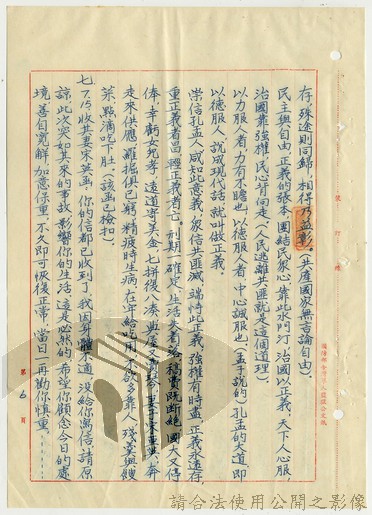 存，殊途則同歸，相得乃益彰。（共產國家無言論自由）。
民主與自由，正義的張本，團結民眾心，靠此水門汀，治國以正義，天下人心服，
治國靠強權，民心背向走（人民逃離共匪就是這個道理）。
以力服人者，力有不贍也，以德服人者，中心誠服也（孟子說的）孔孟的大道，即
以德服人，說成現代話，就叫做正義。
崇信孔孟人，咸知此意義，家信共匪滅，端恃此正義，強權有時盡，正義永遠存，
重正義者昌，輕正義者亡。刑期一確定，生活失着落，稿費既斷絕，國大又停
俸，幸虧女兒等，遠道寄美金，七拼復八湊
走來供應，羅掘俱已窮，精疲時生病，在年給吃用
菜，點滴吃下肚（該函已檢扣）
七、7.15.收其妻宋英函，你的信都已收到了，我因身體不適，沒給你寫信，請原
諒，此次突如其來的事故，影響你的生活，這是必然的，希望你顧念今日的處
境，善自寬解，加意保重，不久即可恢復正常，當日一再勸你慎重……
第 6 頁
請合法使用公開之影像